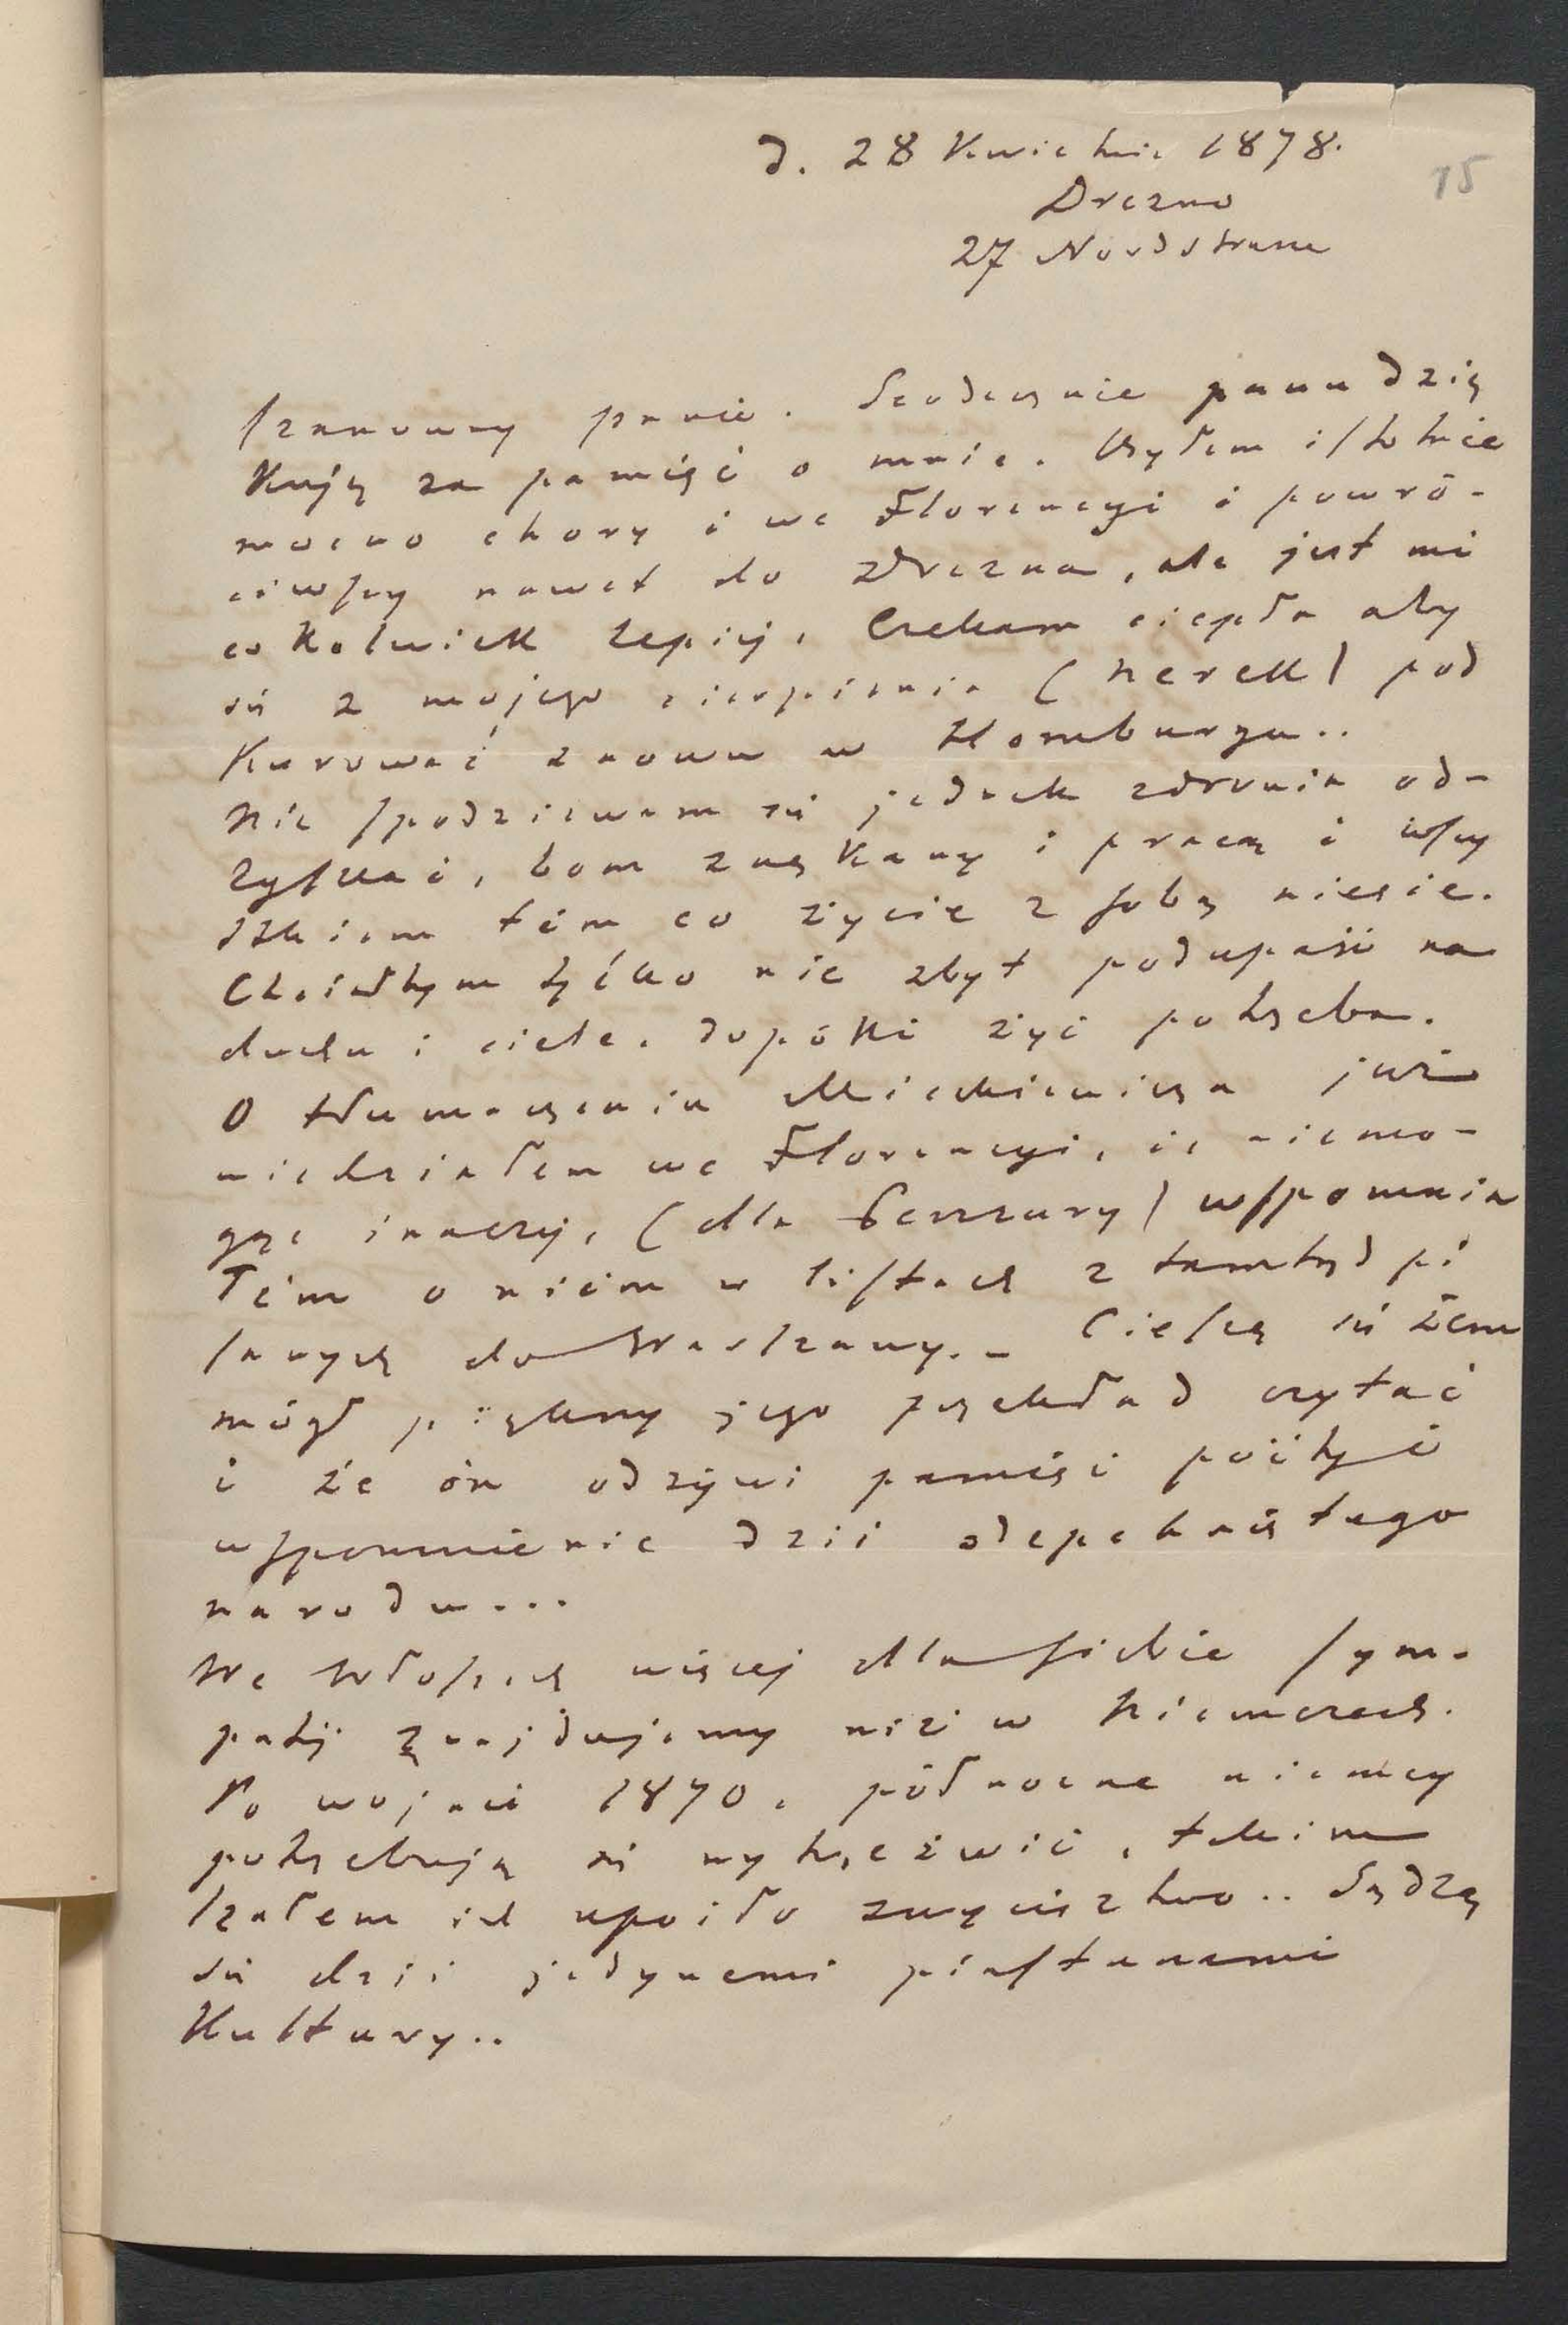 15
d. 28 Kwietnia 1878.
Drezno
27 Nordstrasse
Szanowny panie. Serdecznie panu dzię
kuję za pamięć o mnie. Byłem istotnie
mocno chory i we Florencyi i powró-
ciwszy nawet do Drezna, ale jest mi
cokolwiek lepiej. Czekam ciepła aby
się z mojego cierpienia (nerek) pod
kurować znowu w Homburgu..
Nie spodziewam się jednak zdrowia od-
zyskać, bom znękany i pracą i wszy
stkiem tém co życie z sobą niesie.
Chciałbym tylko nie zbyt podupaść na
duchu i ciele. dopóki żyć potrzeba.
O tłumaczeniu Mickiewicza już
wiedziałem we Florencyi, i niemo-
gąc inaczej, (dla Cenzury) wspomnia
łem o niém w listach z tamtąd pi
sanych do Warszawy. – Cieszę się żem
mógł piękny jego przekład czytać
i że on odżywi pamięć poety i
wspomnienie dziś odepchniętego
narodu...
We Włoszech więcej dla siebie sym-
patij znajdujemy niż w Niemczech.
Po wojnie 1870. północne niemcy
potrzebują się wytrzeźwić, takim
szałem ich upoiło zwycięztwo.. Sądzą
się dziś jedynemi piastunami
Kultury..